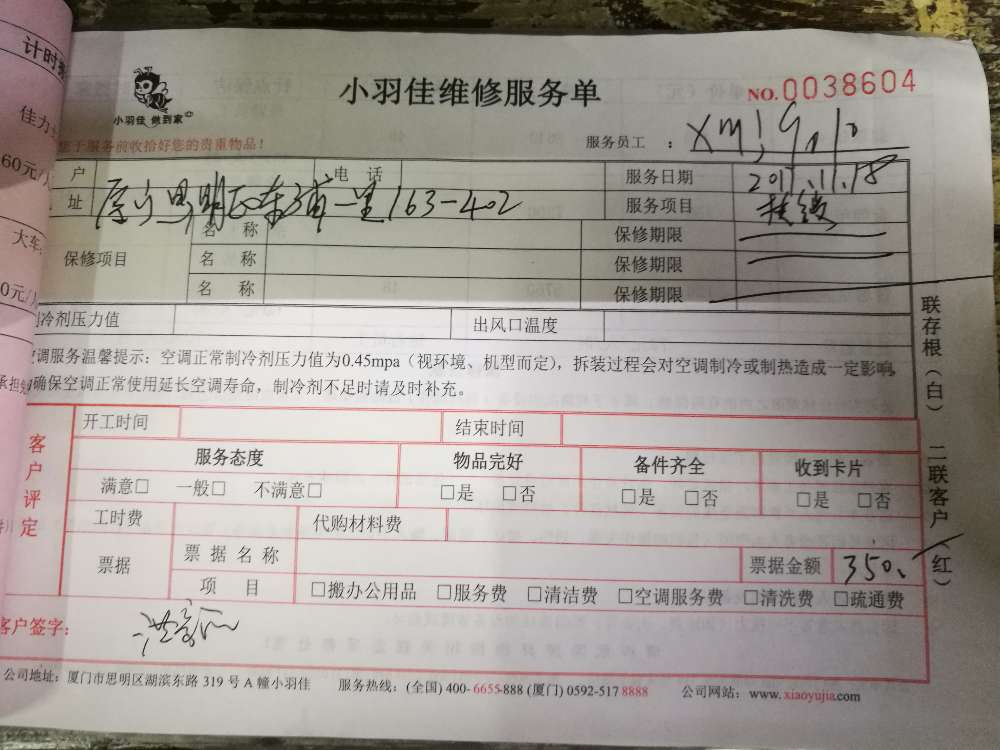 计时
小羽佳维修服务单
NO.0038604
小羽佳 做到家
佳力
于服务前收拾好您的贵重物品！
服务员工 ：
60元/
户 电 话 服务日期 2017.11.18
址 163-402 服务项目
名 称 保修期限
大车
保修项目 名 称 保修期限
0元/
名 称 保修期限
冷剂压力值 出风口温度
调服务温馨提示：空调正常制冷剂压力值为0.45mpa（视环境、机型而定），拆装过程会对空调制冷或制热造成一定影响，
承担
确保空调正常使用延长空调寿命，制冷剂不足时请及时补充。
联存根（白） 二联客户（红）
客户评定
开工时间 结束时间
服务态度 物品完好 备件齐全 收到卡片
满意□ 一般□ 不满意□ □是 □否 □是 □否 □是 □否
工时费 代购材料费
票据 票据名称 票据金额 350.
项 目 □搬办公用品 □服务费 □清洁费 □空调服务费 □清洗费 □疏通费
客户签字：
公司地址：厦门市思明区湖滨东路 319 号 A 幢小羽佳 服务热线：(全国) 400-6655-888 (厦门) 0592-517 8888 公司网站：www.xiaoyujia.com